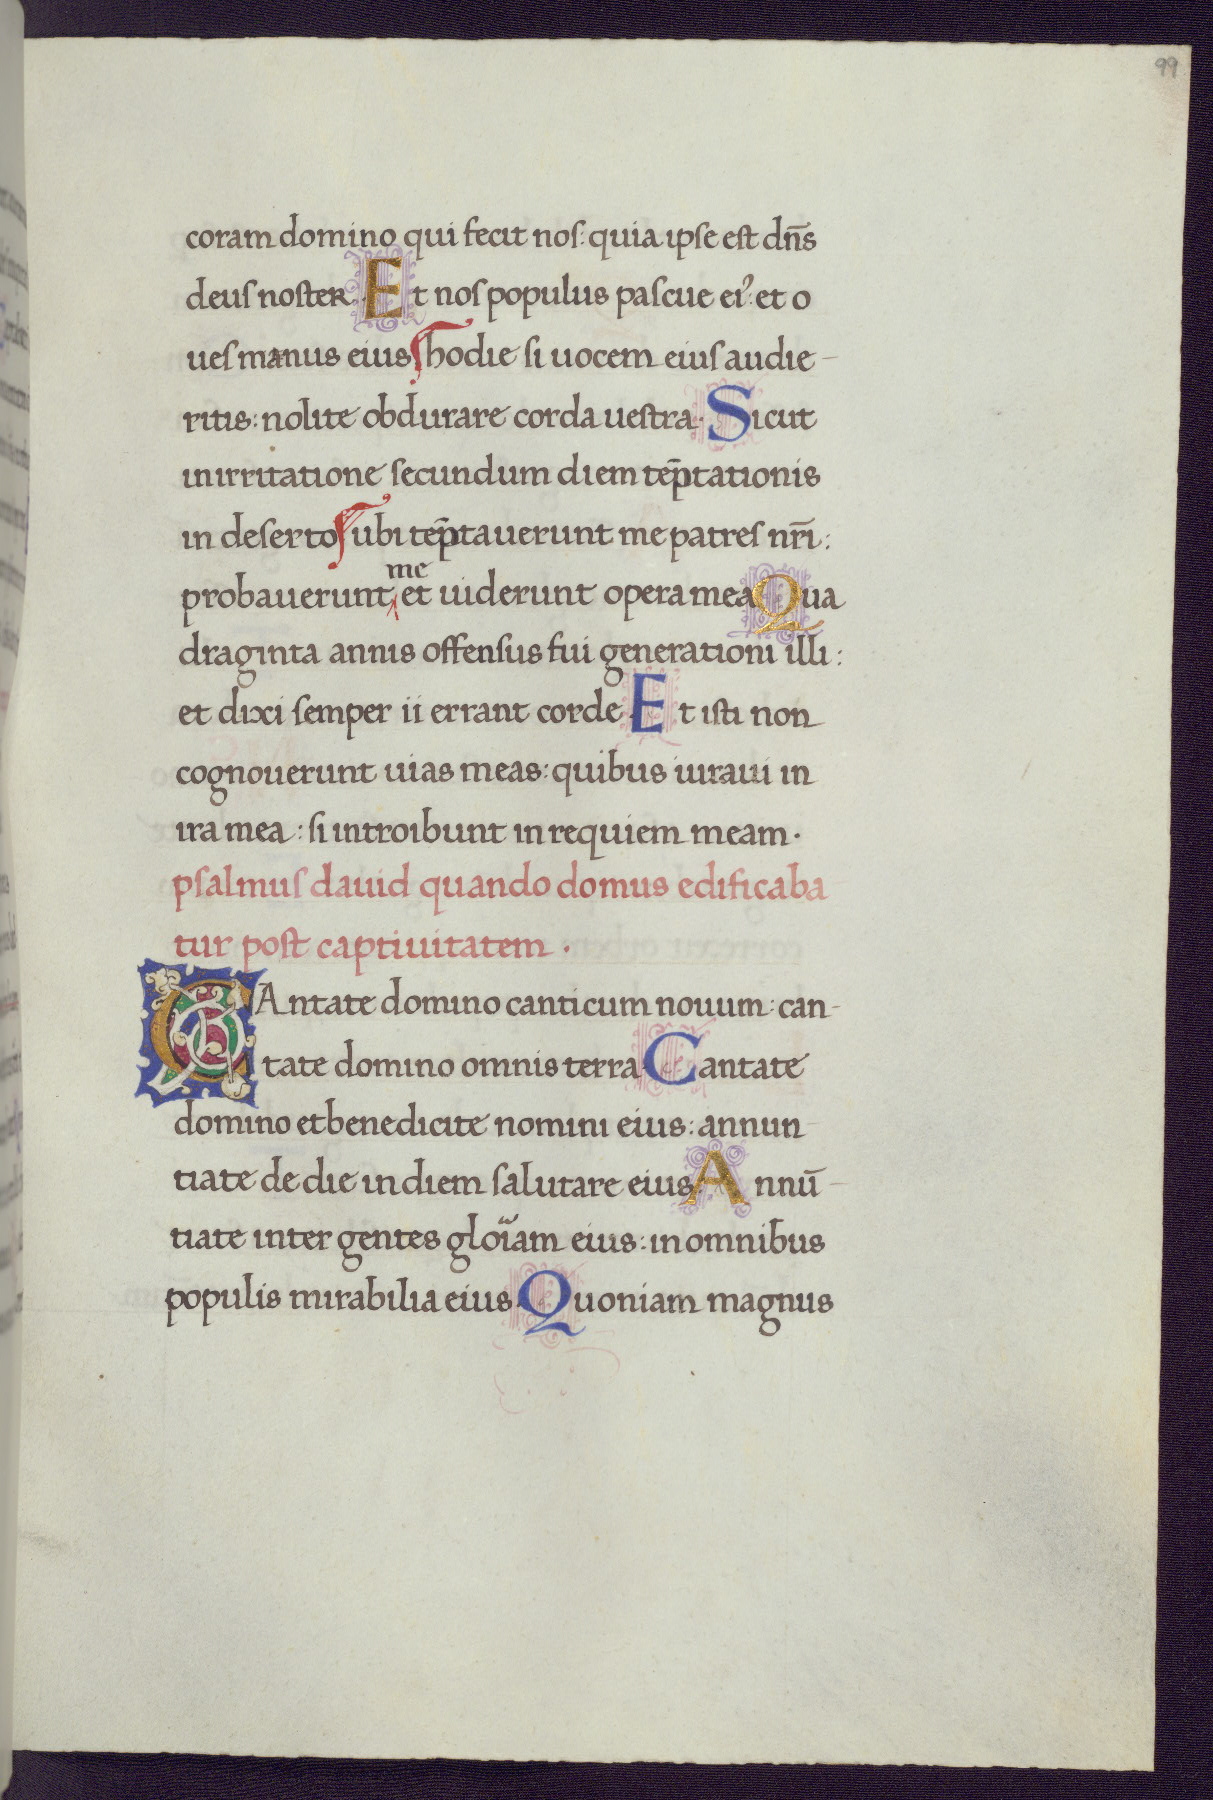 99
coram domino qui fecit nos: quia ipse est dn̄s
deus noster. Et nos populus pascue ei9: et o
ues manus eius hodie si uocem eius audie-
ritis: nolite obdurare corda uestra. Sicut
in irritatione secundum diem tēptationis
in deserto ubi tēptauerunt me patres nr̄i:
me
probauerunt et uiderunt opera mea. Qua
draginta annis offensus fui generationi illi:
et dixi semper ii errant corde. Et isti non
cognouerunt uias meas: quibus iuraui in
ira mea: si introibunt in requiem meam.
psalmus dauid quando domus edificaba
tur post captiuitatem.
CAntate domino canticum nouum: can-
tate domino omnis terra. Cantate
domino et benedicite nomini eius: annun
tiate de die in diem salutare eius. Annū-
tiate inter gentes gloriam eius: in omnibus
populis mirabilia eius. Quoniam magnus